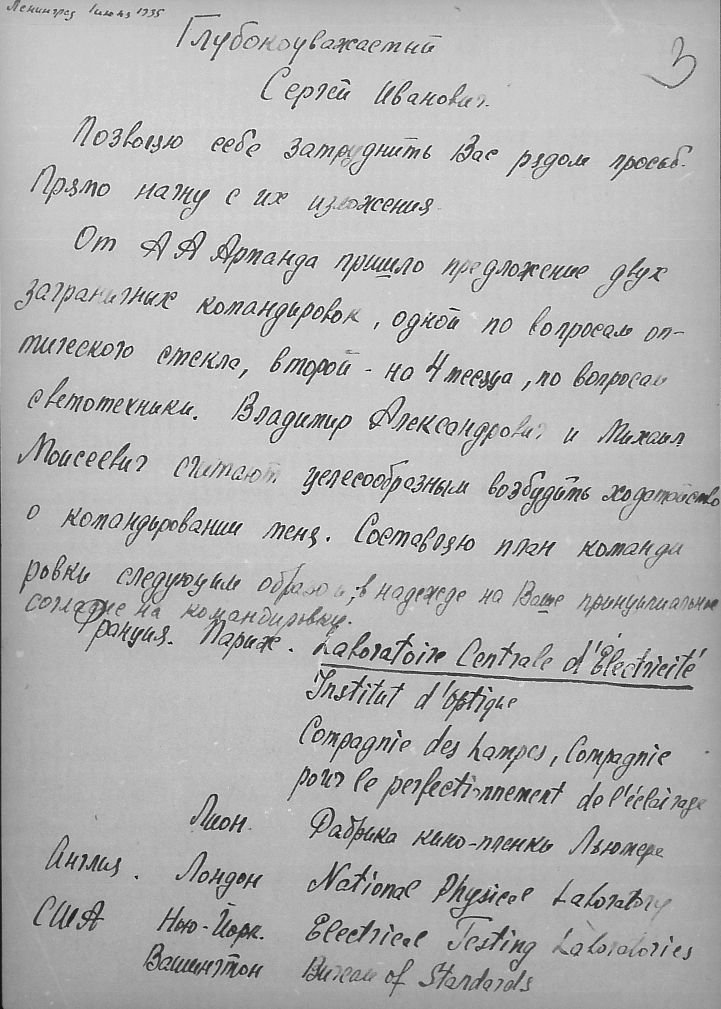 Ленинград 1 июня 1935
3
Глубокоуважаемый
Сергей Иванович.
Позволяю себе затруднить Вас рядом просьб.
Прямо начну с их изложения.
От А А Арманда пришло предложение двух
заграничных командировок, одной по вопросам оп-
тического стекла, второй - на 4 месяца, по вопросам
светотехники. Владимир Александрович и Михаил
Моисеевич считают целесообразным возбудить ходатайство
о командировании меня. Составляю план команди
ровки следующим образом, в надежде на Ваше принципиальное
согласие на командировку.
Франция. Париж. Laboratoire Centrale d'Électricité
Institut d'Optique
Compagnie des Lampes, Compagnie
pour le perfectionnement de l'éclairage
Лион. Фабрика кино-пленки Льюмере
Англия. Лондон National Physical Laboratory
США Нью-Йорк. Electrical Testing Laboratories
Вашингтон Bureau of Standards